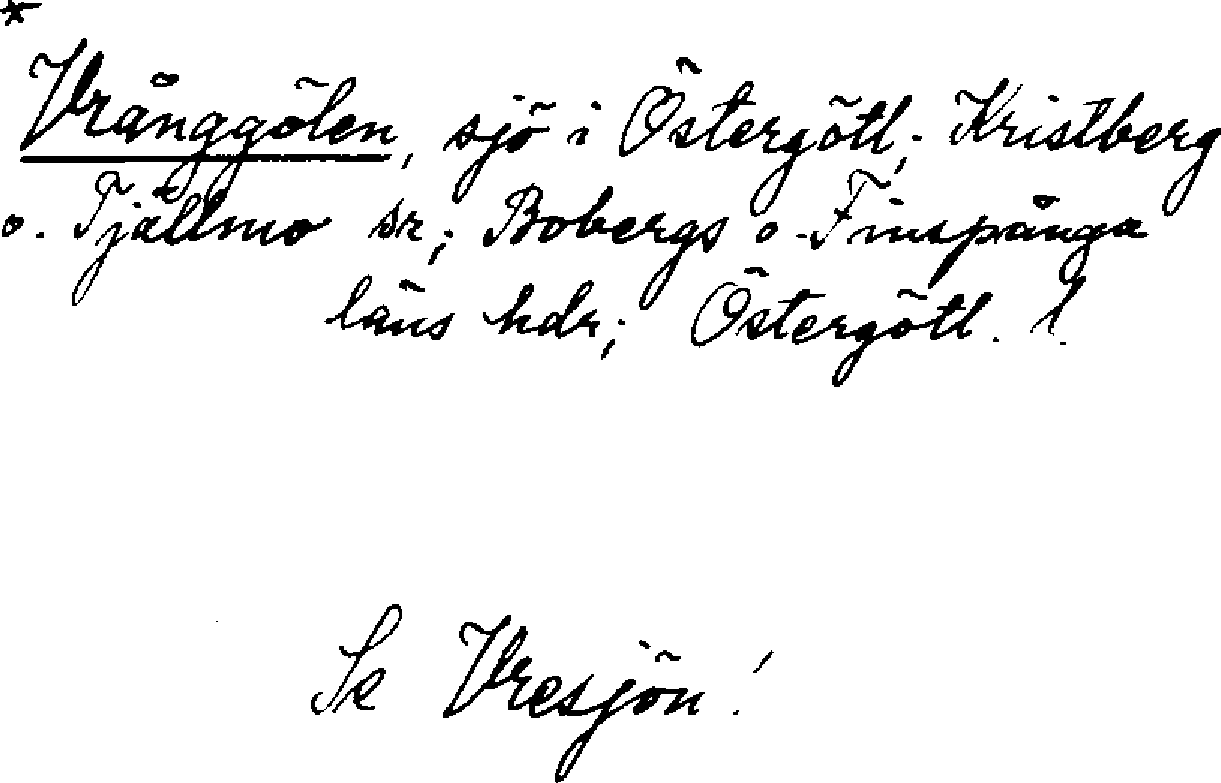 *
Vrånggölen, sjö i Östergötl.; Kristberg
o. Tjällmo sr; Bobergs o. Finspånga
läns hdr; Östergötl. l.
Se Vresjön!